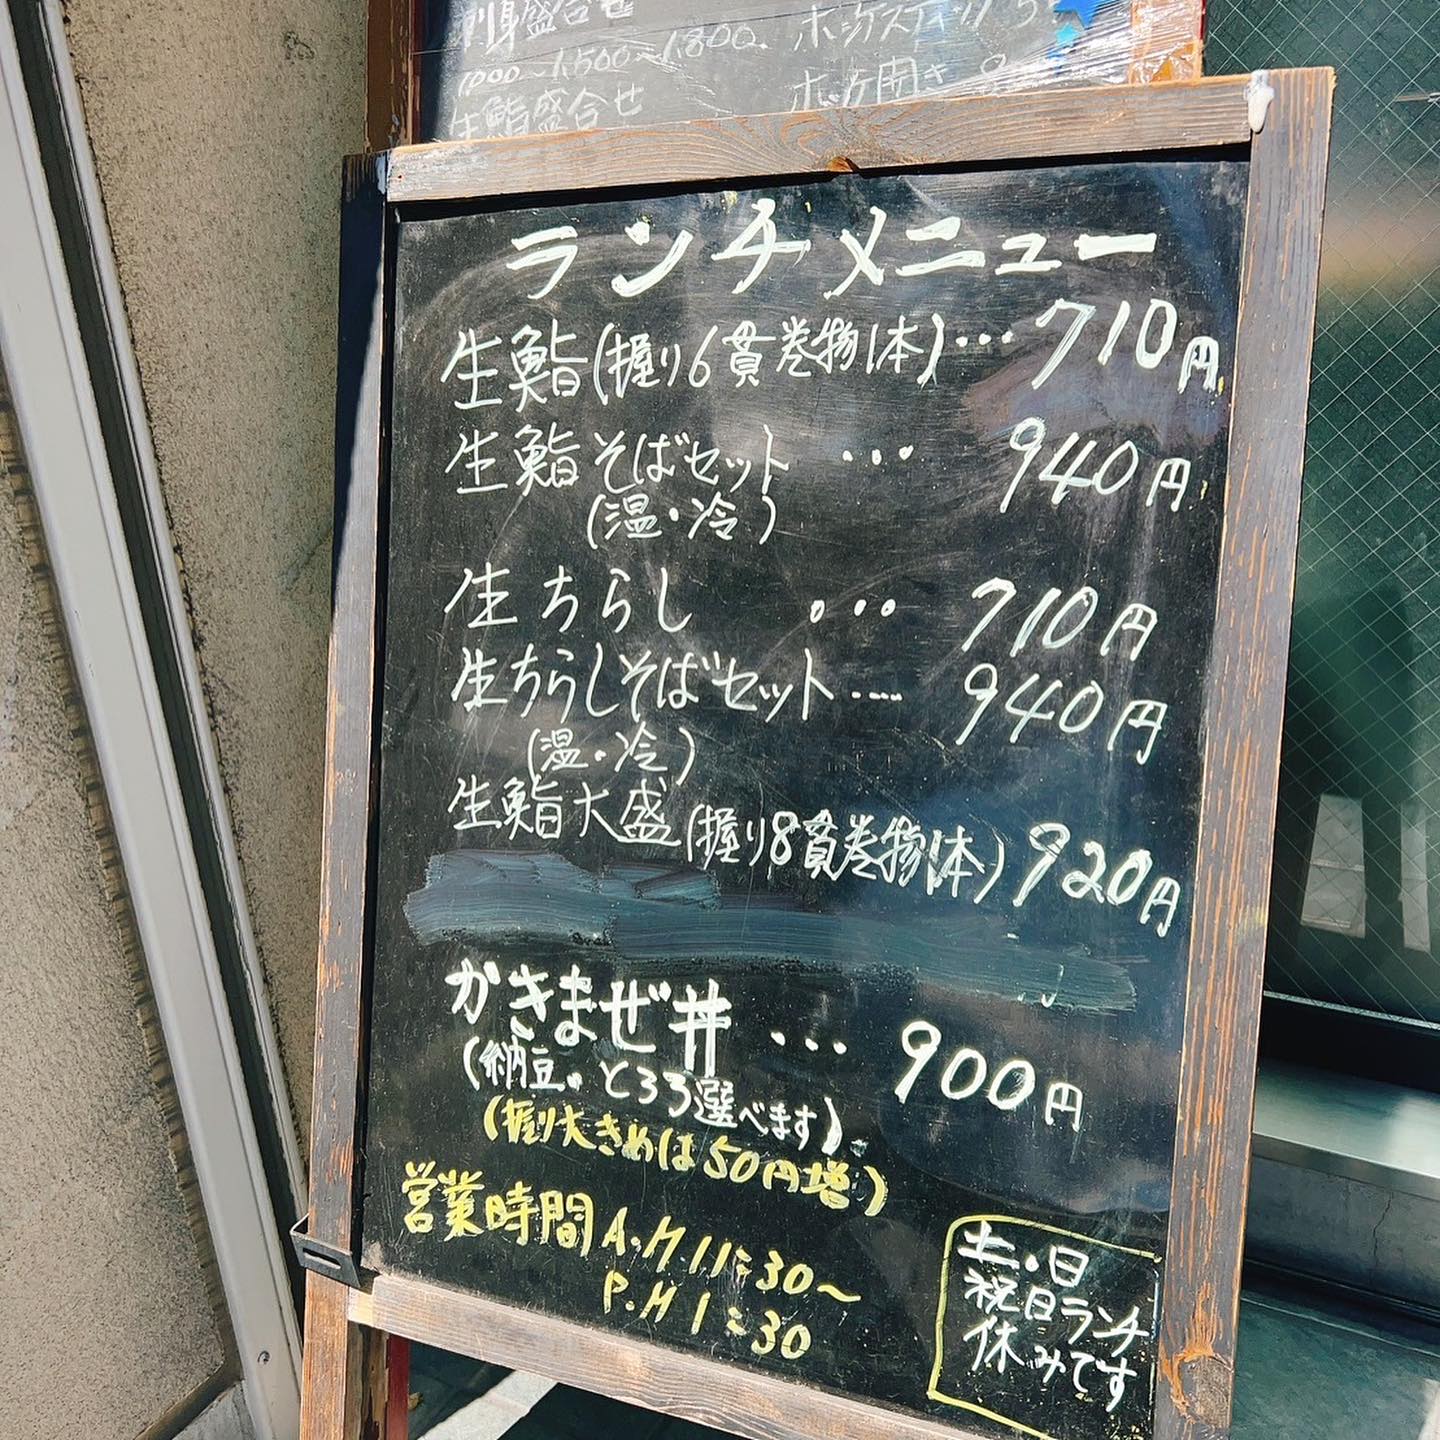 刺身盛合せ
1000~1,500~1,800
ホッケスティック
生鮨盛合せ
ホッケ開き
ランチメニュー
生鮨(握り6貫巻物1本)…710円
生鮨そばセット …940円
(温・冷)
生ちらし …710円
生ちらしそばセット…940円
(温・冷)
生鮨大盛(握り8貫巻物1本)920円
かきまぜ丼…900円
(納豆。とろろ選べます)
(握り大きめは50円増)
営業時間A.M.11:30~
P.M1:30
土・日
祝日ランチ
休みです